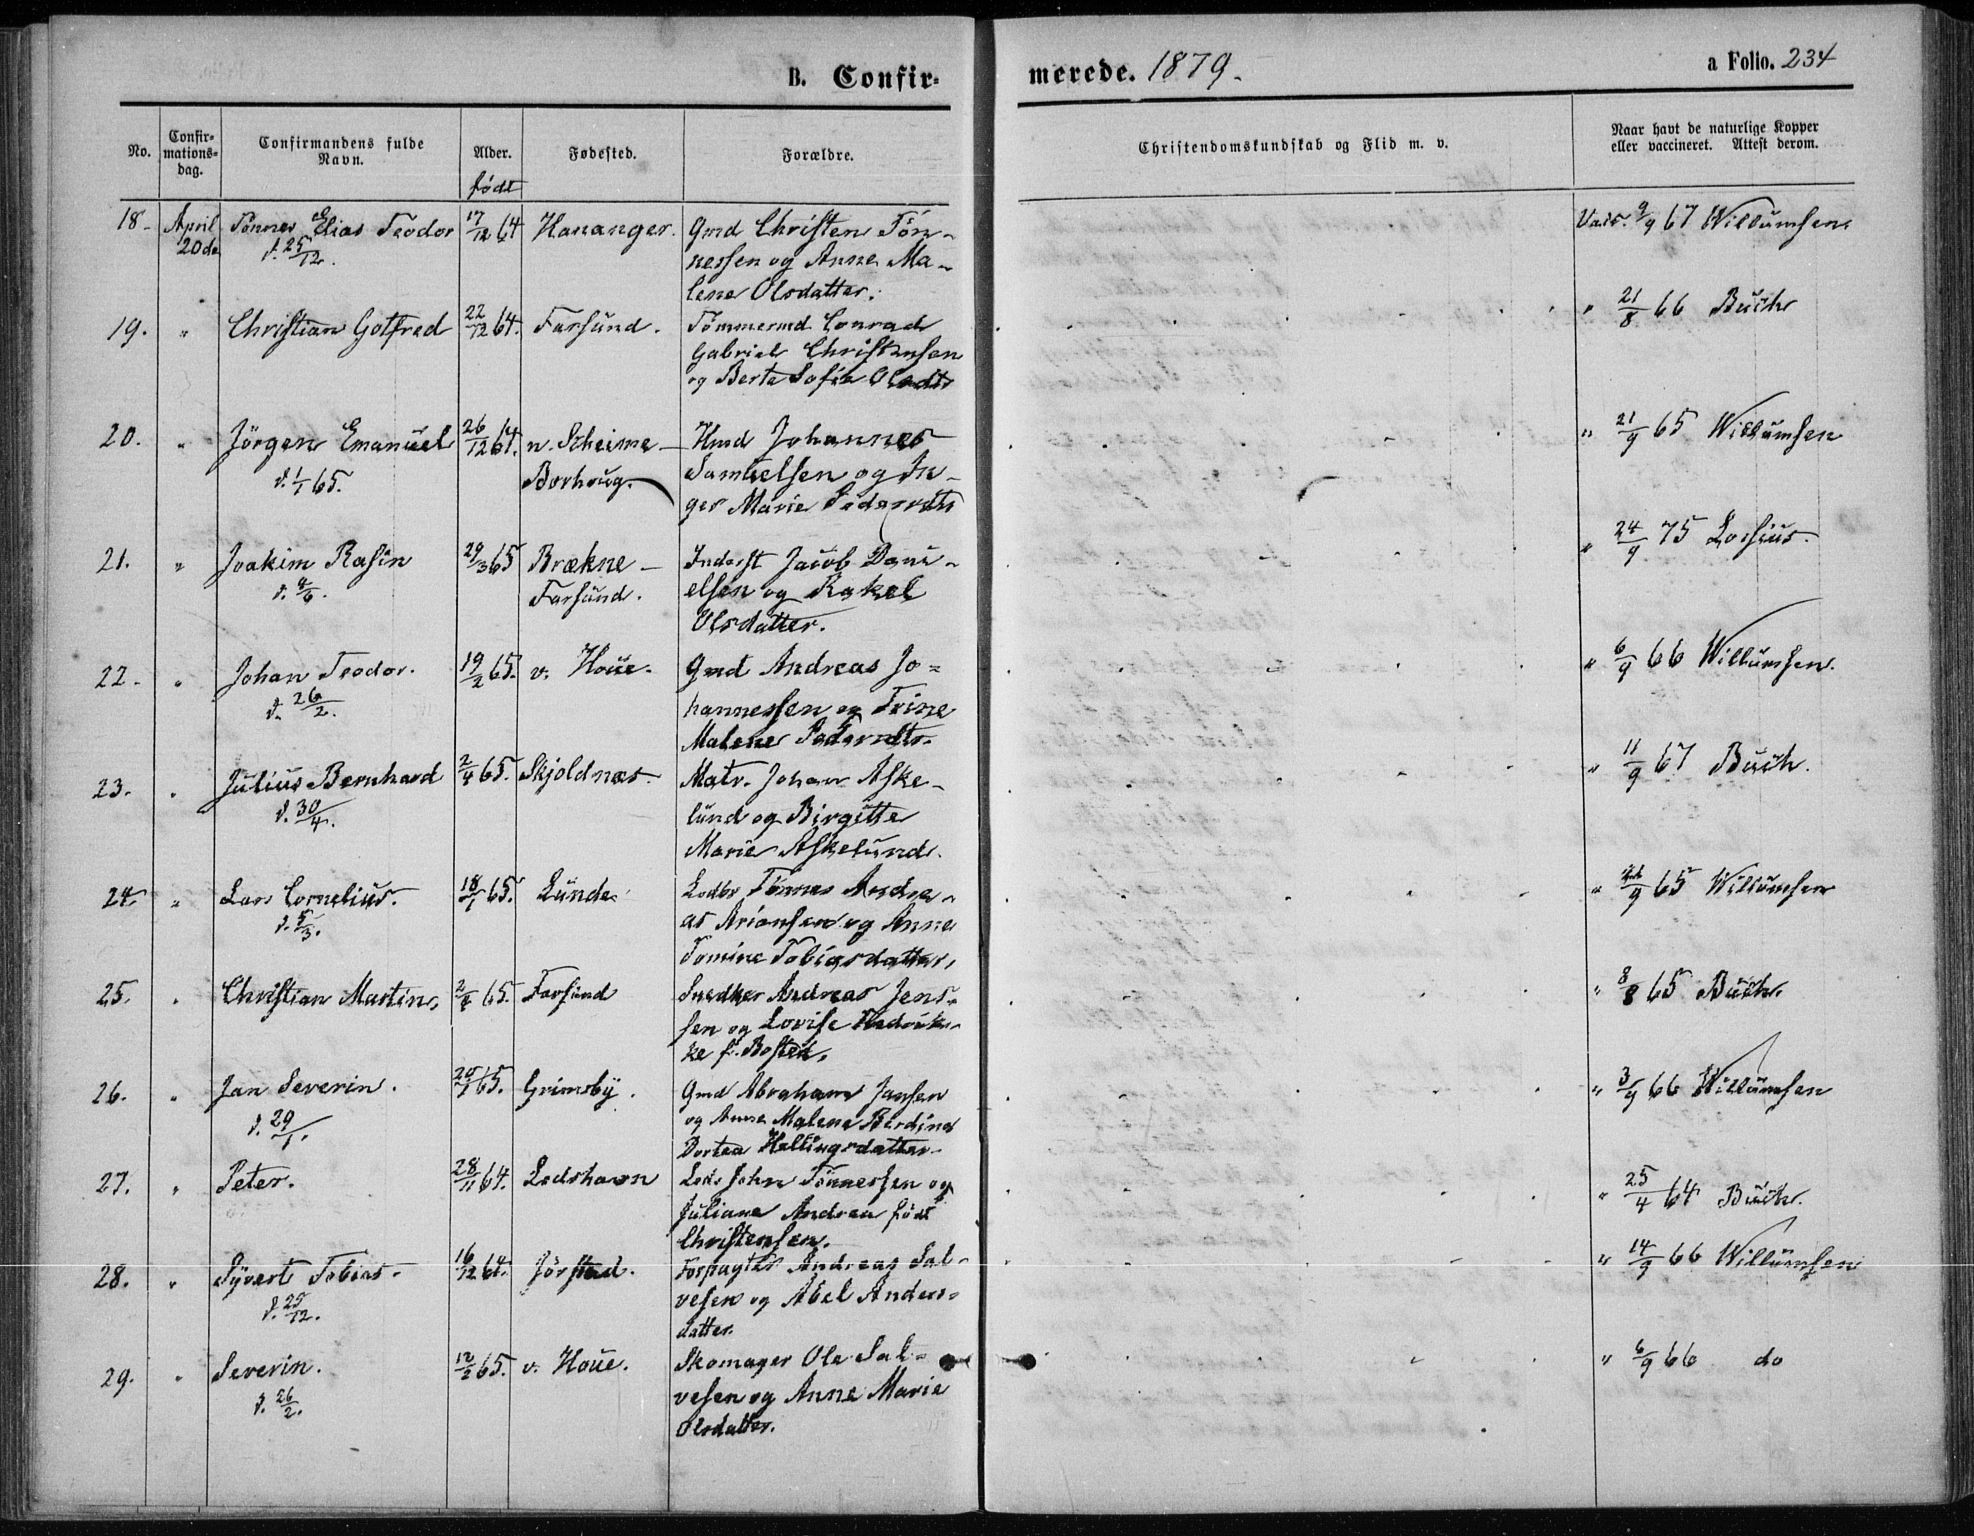 B. Confir-
merede. 1879.
a Folio. 234
No.
Confir-
mations-
dag.
Confirmandens fulde
Navn.
Alder.
født
Fødested.
Forældre.
Christendomskundskab og Flid m. v.
Naar havt de naturlige Kopper
eller vaccineret. Attest derom.
18. April 20de Tönnes Elias Teodor 17/12 64 Hananger. Gmd Christen Tön-
d. 25/12. nessen og Anne Ma-
lene Olsdatter.
Vacc. 9/9 67 Willumsen.
19. " Christian Gotfred 22/12 64. Farsund. Tømmermd. Conrad
Gabriel Christensen
og Berte Sofie Olsdtr
" 21/8 66 Buch
20. " Jörgen Emanuel 26/12 64. n. Skeime- Hmd Johannes
d. 1/1 65. Borhoug. Samuelsen og In-
ger Marie Pedersdtr
" 21/9 65 Willumsen
21. " Joakim Rasin 29/3 65 Brækne- Inderst Jacob Dani-
d. 4/6. Farsund. elsen og Rakel
Olsdatter.
" 24/9 75 Lossius.
22. " Johan Teodor. 19/2 65. v. Houe. Gmd Andreas Jo-
d. 26/2. hannessen og Trine
Malene Pedersdtr.
" 6/9 66 Willumsen.
23. " Julius Bernhard 2/4 65. Skjoldnæs. Matr. Johan Aske-
d. 30/4. lund og Birgitte
Marie Askelund.
" 11/9 67 Buch.
24. " Lars Cornelius. 18/1 65. Lunde. Lods Tönnes Andre-
d. 5/3. as Arionsen og Anne
Tomine Tobiasdatter,
" /9 65 Willumsen
25. " Christian Martin, 65. Farsund Snedker Andreas Jens-
sen og Lovise Fredrik-
ke f.
" 8/8 65 Buch.
26. " Jan Severin. 20/1 65. Grimsby. Gmd Abraham Jansen
d. 29/1. og Anne Malene Berdine
Dortea Hellingsdatter.
" 3/9 66 Willumsen
27. " Peter. 28/11 64. Lodshavn Lods John Tönnessen og
Juliane Andrea født
Christensen.
" 25/4 64 Buch.
28. " Syvert Tobias. 16/12 64. Jörstad. Forpagter Andreas Sal-
d. 25/12. vesen og Abel Anders-
datter.
" 14/9 66 Willumsen
29. " Severin. 12/2 65. v. Houe. Skomager Ole Sal-
d. 26/2. vesen og Anne Marie
Olsdatter.
" 6/9 66 do